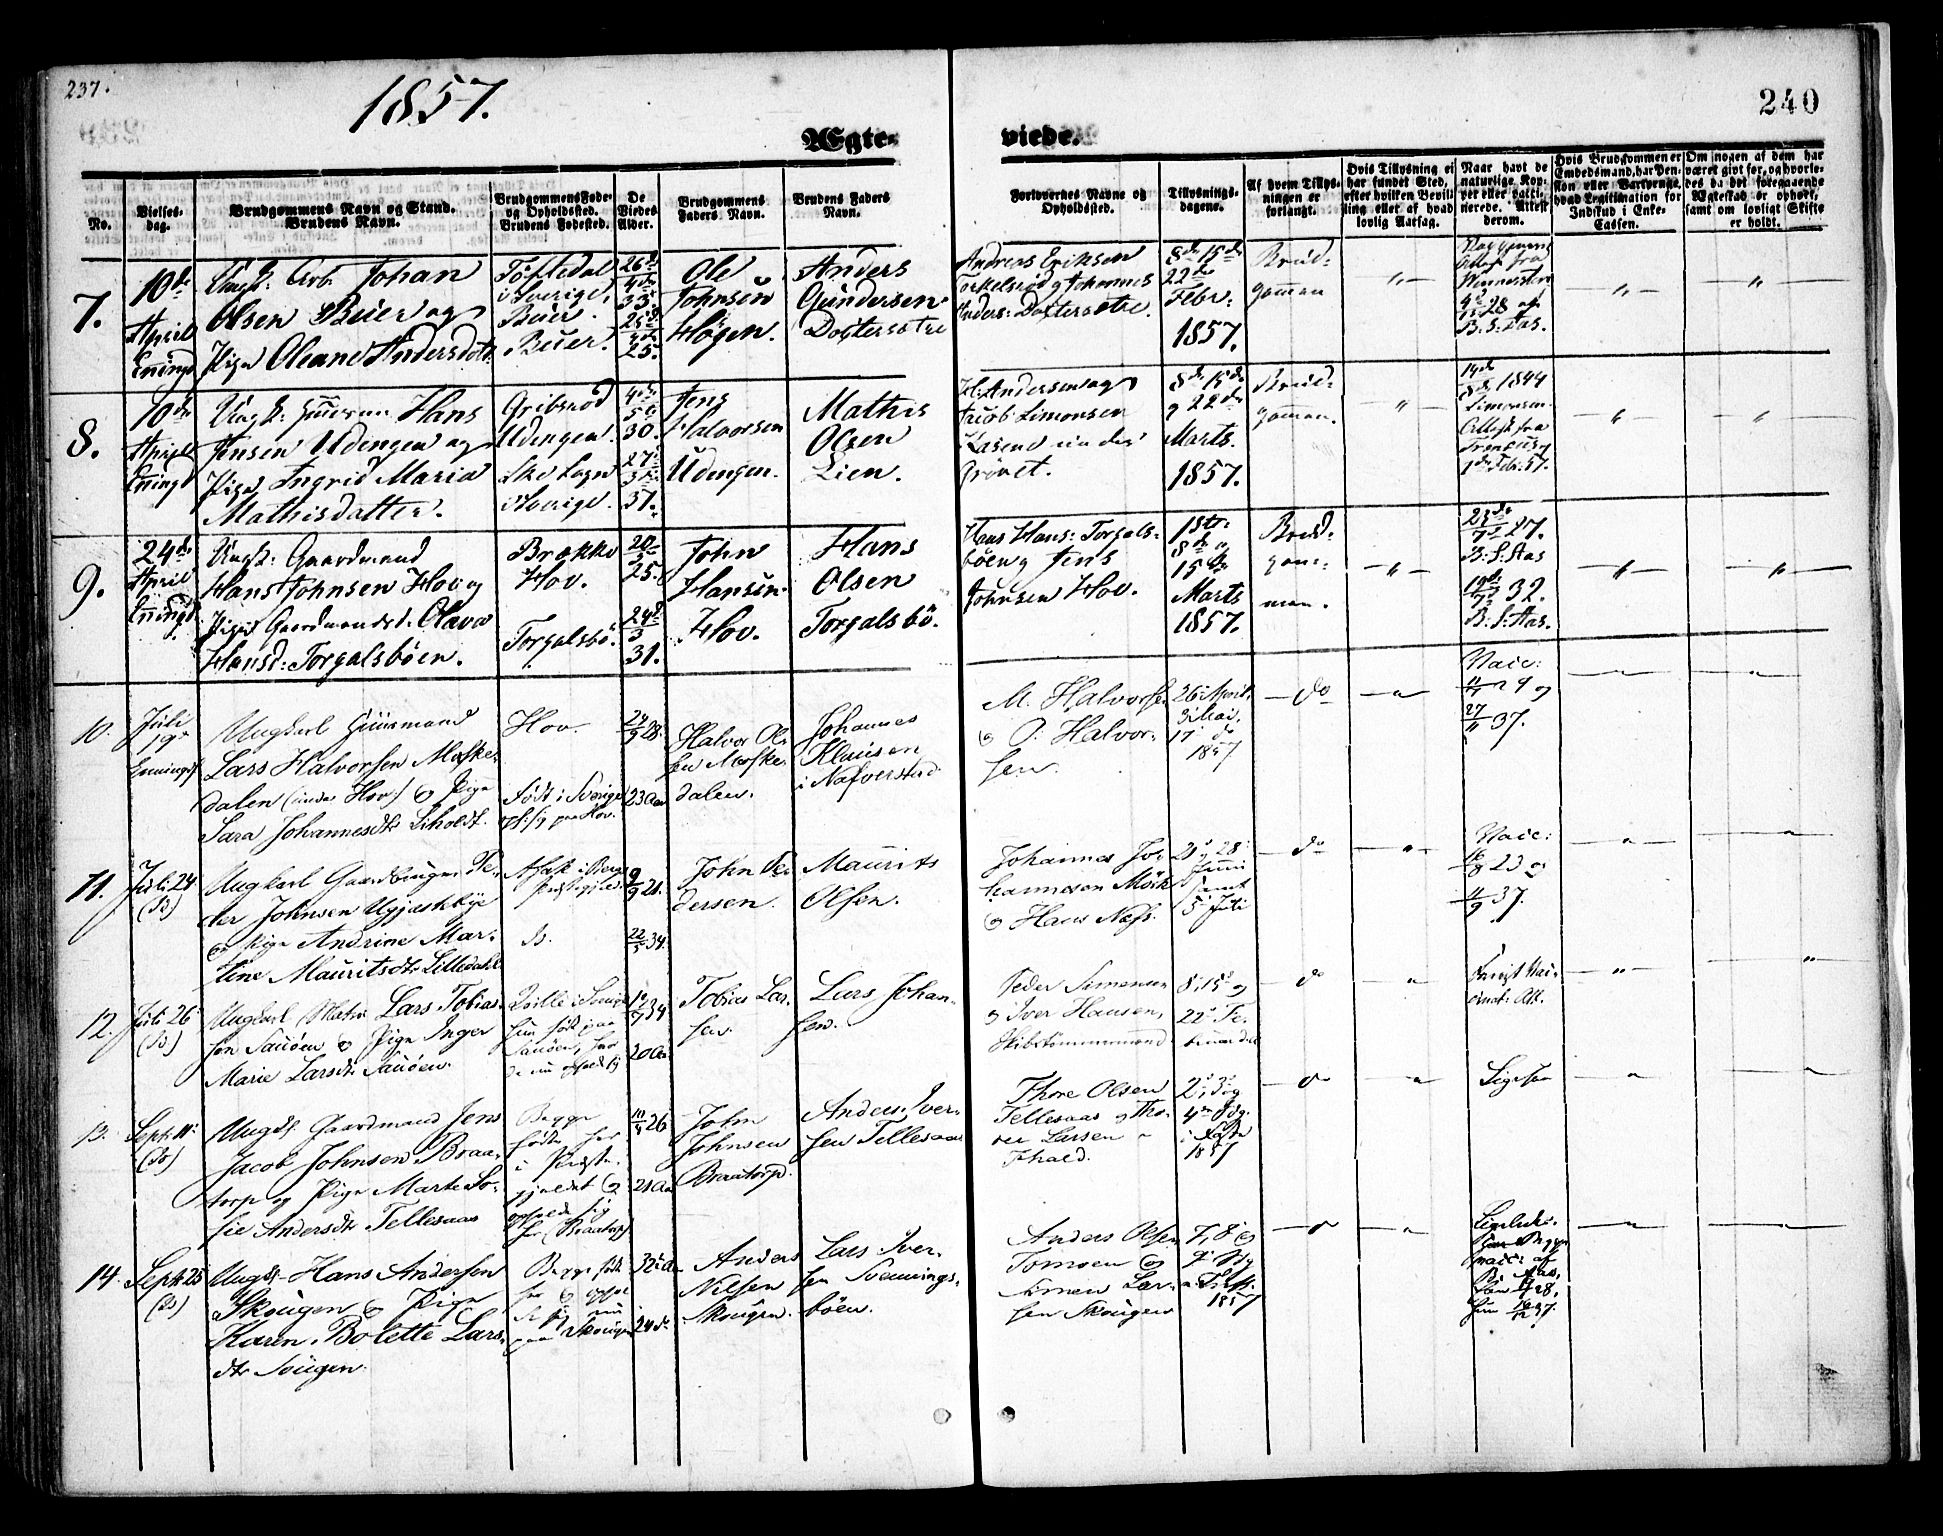 237.
1857.
240
Ægte-
viede.
No.
Vielses-
dag.
Brudgommens Navn og Stand.
Brudens Navn.
Brudgommens Føde-
og Opholdssted.
Brudens Fødested.
De
Viedes
Alder.
Brudgommens
Faders Navn.
Brudens Faders
Navn.
Forlovernes Navne og
Opholdssted.
Tillysnings-
dagene.
Af hvem Tillys-
ningen er
forlangt.
Hvis Tillysning ei
har fundet Sted,
efter hvilken Bevil-
ling eller af hvad
lovlig Aarsag.
Naar havt de
naturlige Kop-
per eller vacci-
nerede. Attest
derom.
Hvis Brudgommen er
Embedsmand, har Pen-
sion eller Vartpenge,
hvad Legitimation for
Indskud i Enke-
Cassen.
Om nogen af dem har
været givt før, og hvorle-
des da det foregaaende
Ægteskab er ophørt,
samt om lovligt Skifte
er holdt.
7.
10de
April
Enningd
Ungk: Arb. Johan
Olsen Buer og
Pige Oleane Andersdott.
Töftedal
i Sverige,
Buer.
Buer.
33.
25.
Ole
Johnsen
Högen.
Anders
Gundersen
Dostersætre
Andreas Eriksen
Torkelsröd og Johannes
Anders: Dostersætre.
8de 15de
22de
Febr:
1857.
Brud-
gommen
B: S: Aas.
8.
10de
April
Enningd
Ungk: Huusm. Hans
Jensen Udengen og
Pige Ingrid Maria
Mathisdatter.
Gribsröd
Udengen.
Skee Sogn
i Sverige.
30.
31.
Jens
Halvorsen
Udengen.
Mathis
Olsen
Lien.
H: Andersen og
Jacob Simonsen
8de 15de
og 22de
Marts.
1857.
Brud-
gommen.
8de 1844
Simonsen.
Attest fra
9.
24de
April
Enningd.
Ungk: Gaardmand
Hans Johnsen Hov og
Pige Gaardmandsd: Olava
Hansd: Torgalsböen.
Brække
Hov.
Torgalsbö.
25.
24de
3
31.
John
Hansen
Hov.
Hans
Olsen
Torgalsbö.
Hans Hans: Torgals-
böen og Jens
Johnsen Hov.
1ste
8de og
15de
Marts
1857.
Brud-
gom-
men.
27.
B: S: Aas
32.
B: S: Aas.
10.
Juli
19de
Enningd.
Ungkarl Huusmand
Lars Halvorsen Moske-
dalen (under Hov) og Pige
Sara Johannesdtr Liholdt.
Hov.
Født i Sverige
28.
23 Aar
Halvor Ol-
sen Moske-
dalen.
Johannes
Klausen
i Nafverstad
M. Halvorsen
og O. Halvor-
sen.
26 April,
3 Mai,
17 do
1857
do
Vacc:
29 og
27
37.
11.
Juli 24
(B)
Ungkarl Gaardbruger Pe-
der Johnsen Ugjestebye
og Pige Andrine Mar-
tine Mauritsdtr Lilledahl
Prestegjeld.
B.
9/9 21.
22/5 34.
John Pe-
dersen.
Maurits
Olsen.
Johannes Jo-
hannesen Moik
og Hans Næss.
21 og 28
Juni
samt
5 Juli
do
Vacc:
23 og
11/9 37.
12.
Juli 26
(B)
Ungkarl Matr. Lars Tobias-
sen Sauöen og Pige Inger
Marie Larsdtr Sauöen.
Qville i Sverige
hun født paa
Sauöen, hvor
de nu opholde sig
34
20 Aar.
Tobias Lar-
sen.
Lars Johan-
sen.
Peder Simonsen
og Iver Hansen,
Skibstömmermænd
8, 15 og
22 Fe-
bruar
do
13.
Sept. 11
(B)
Ungk. Gaardmand Jens
Jacob Johnsen Braa-
torp og Pige Marte So-
fie Andersdtr Tellesaas
Begge
fødte her
i Preste-
gjeldet og
opholde sig
her (Braatorp)
26
21 Aar
John
Johnsen
Braatorp.
Anders Iver-
sen Tellesaas
Thore Olsen
Tellesaas og Tho-
re Larsen
Fhald.
2, 3 og
4de Sdg.
1857
do
Ligesaa
14.
Sept. 25
(B)
Ungk. Hans Andersen
Skougen og Pige
Karen Bolette Lars-
dtr Sougen.
Begge födt
her og ophol-
de sig nu
paa Skougen
32 Aar
24 do
Anders
Nilsen
Skougen.
Lars Iver-
sen Svennings-
böen.
Anders Olsen
Tomoen og
Simen Lar-
sen Skougen
7, 8 og
1857
do
Begge
vacc: af
Aas,
28,
hun
37.